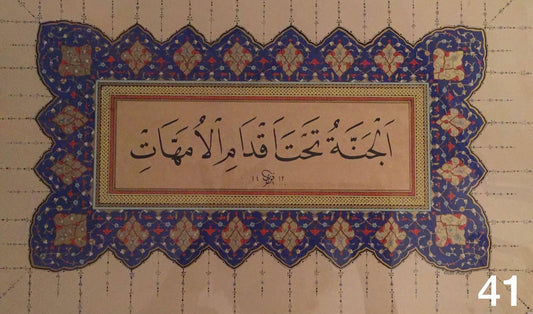 اَلْجَنَّةُ تَحْتَ اَقْدَامِ الْاُمَّهَاتِ
41